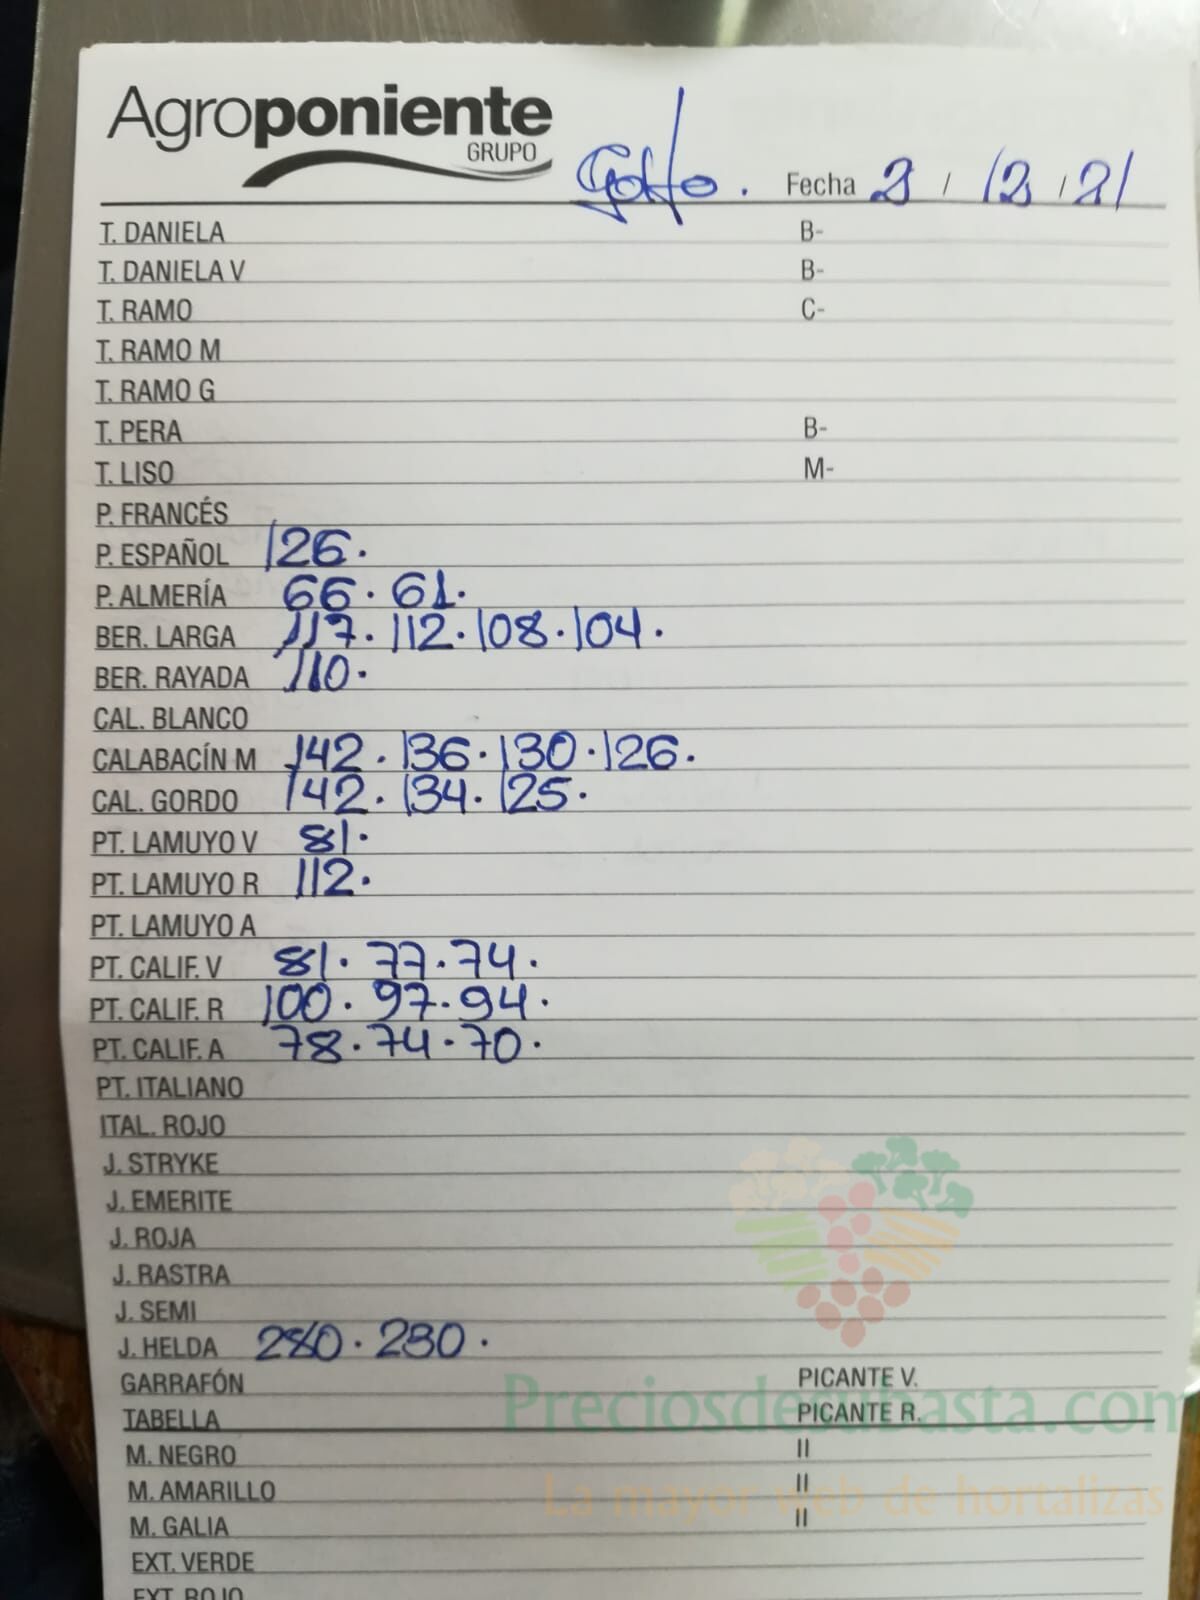 Agroponiente
GRUPO
Golfo. Fecha 2 / 12 / 21
T. DANIELA B-
T. DANIELA V B-
T. RAMO C-
T. RAMO M
T. RAMO G
T. PERA B-
T. LISO M-
P. FRANCÉS
P. ESPAÑOL 126.
P. ALMERÍA 66. 61.
BER. LARGA 117. 112. 108. 104.
BER. RAYADA 110.
CAL. BLANCO
CALABACÍN M 142. 136. 130. 126.
CAL. GORDO 142. 134. 125.
PT. LAMUYO V 81.
PT. LAMUYO R 112.
PT. LAMUYO A
PT. CALIF. V 81. 77. 74.
PT. CALIF. R 100. 97. 94.
PT. CALIF. A 78. 74. 70.
PT. ITALIANO
ITAL. ROJO
J. STRYKE
J. EMERITE
J. ROJA
J. RASTRA
J. SEMI
J. HELDA 280. 230.
GARRAFÓN PICANTE V.
Preciosdesubasta.com
TABELLA PICANTE R.
M. NEGRO II
M. AMARILLO II
La mayor web de hortalizas
M. GALIA II
EXT. VERDE
EXT. ROJO